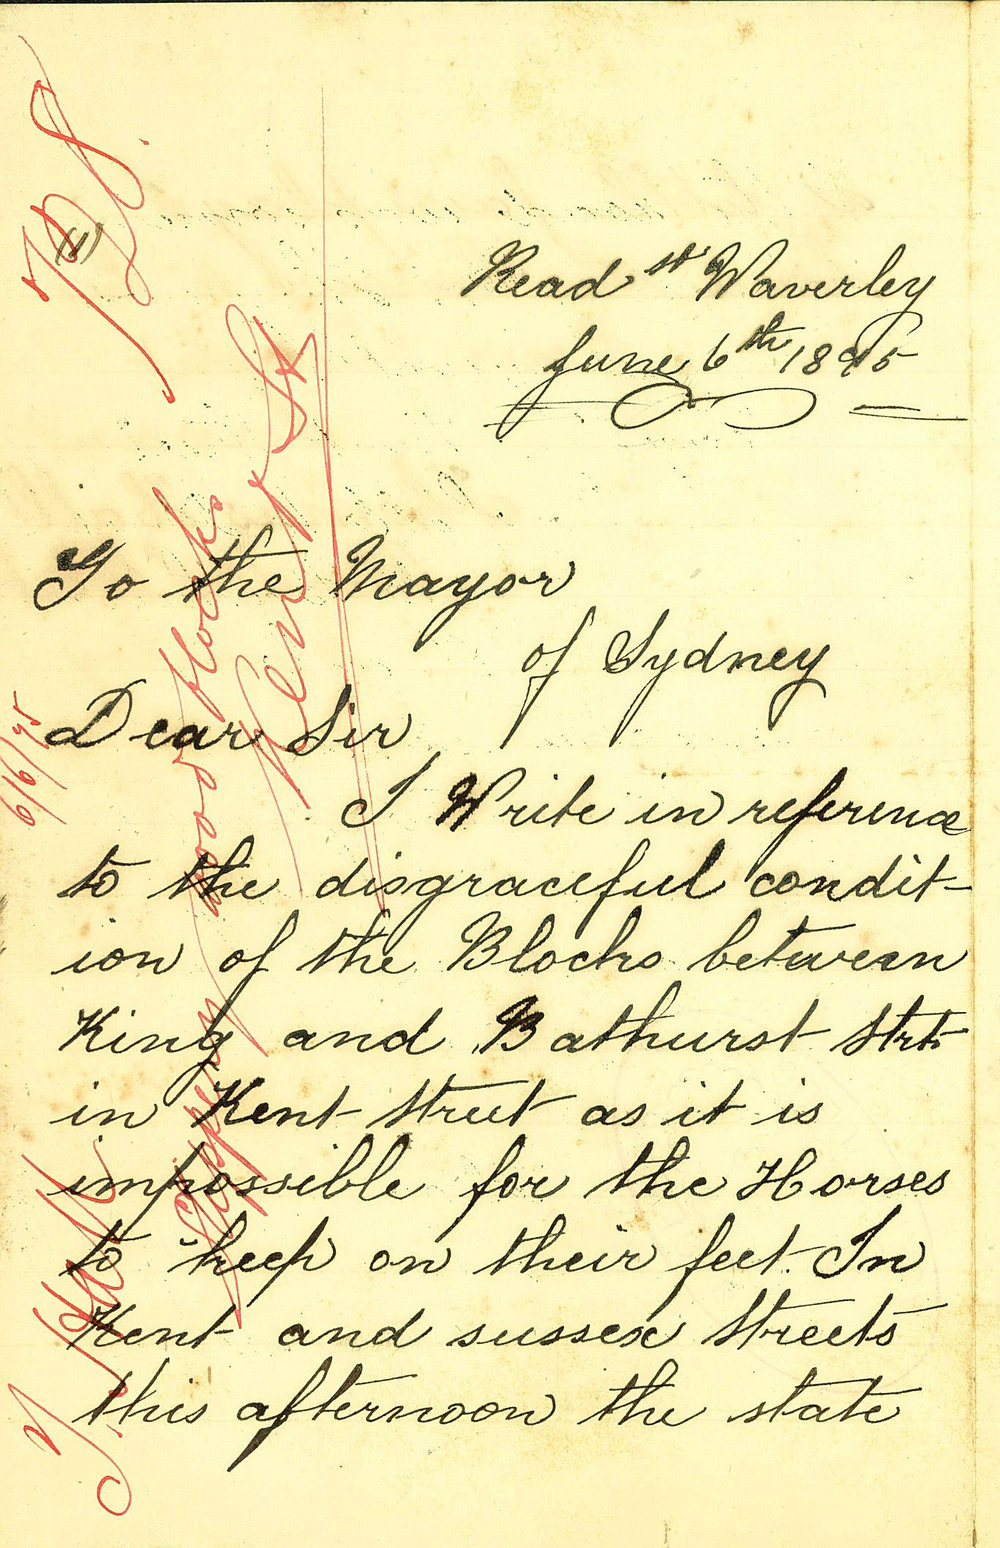 Read st Waverley
June 6th 1895
To the Mayor
of Sydney
Dear Sir
I Write in reference
to the disgraceful condit-
ion of the Blocks between
King and Bathurst Strts
in Kent Street as it is
impossible for the Horses
to keep on their feet. In
Kent and sussex Streets
this afternoon the state
Slippery wood blocks
Kent St
6/6/95
(1)